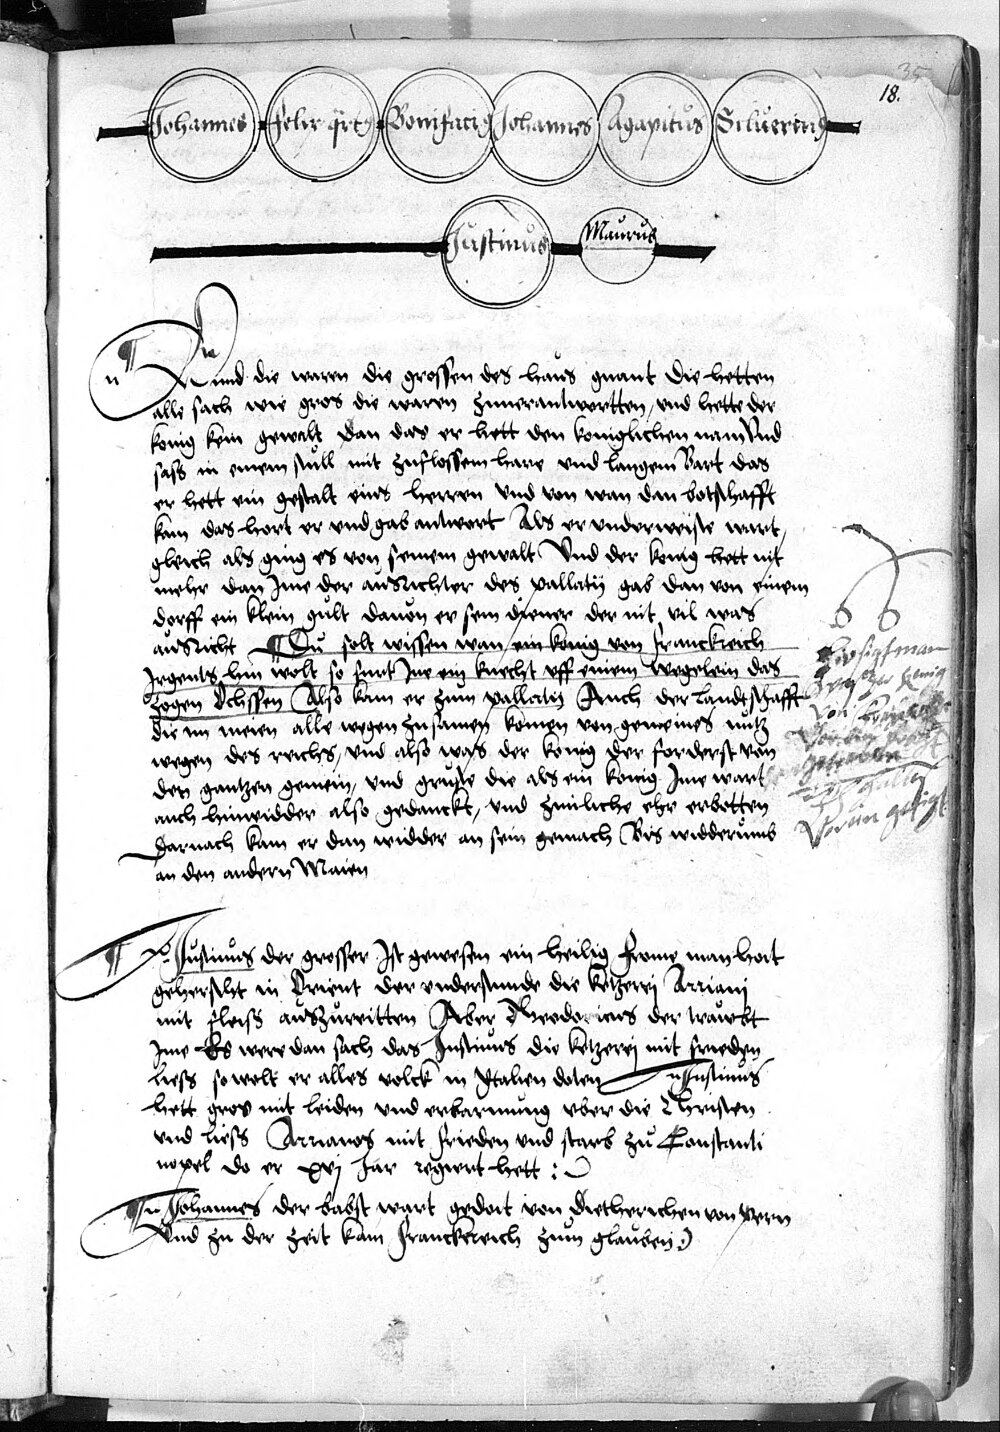 35
18.
Johannes Felix qrtq Bonifaciq Johannes Agapitus Siluerinq
Justinus Maurus
Vnnd die waren die grossen des haus gnant Die hetten
alle sach wie gros die waren zuuerantwertten, vnd hette der
konig kein gewalt Dan das er hett den koniglichen nam Vnd
sass in einem stull mit zuflossem hare vnd langem Bart das
er hett ein gestalt eins herren Vnd von wan dan botschafft
kam das hort er vnd gab antwort Als er vnderweiste wart,
gleich als ging es von seinem gewalt Vnd der konig hett nit
mehr dan Jme der ausRichter des pallatij gab dan von einem
dorff ein klein gult dauon er sein diener der nit vil was
ausRicht Du solt wissen wan ein konig von Franckreich
Jrgents hin wolt so furt Jne ein knecht vff einem wegelein das
zogen Ochssen Also kam er zum pallatij Auch der Landtschafft
die im meien alle wegen zusamen komen von gemeines nutz
wegen des reichs, vnd also was der konig der forderst von
der gantzen gemein, vnd gruste die als ein konig Jme wart
auch hinwidder also gedanckt, vnd zimliche ehr erbotten
Darnach kam er dan widder an sein gemach Bis widderumb
an den andern Maien
von
Justinus der grosser Ist gewesen ein heilig frome man hat
geherscht in Orient der vnderstunde die ketzerej Arrianj
mit fleiss auszureitten Aber Theodoricus der trauwbt
Jme Es were dan sach das Justinus die ketzerej mit frieden
liess so wolt er alles volck in Jtalien doten Justinus
hett gros mit leiden vnd erbarmung vber die Christen
vnd liess Arrianos mit frieden vnd starb zu Constanti
nopel do er xvj Jar regiert hett
Johannes der babst wart gedoit von Dietherichen von Bern
Vnd zu der zeit kam Franckreich zum glauben